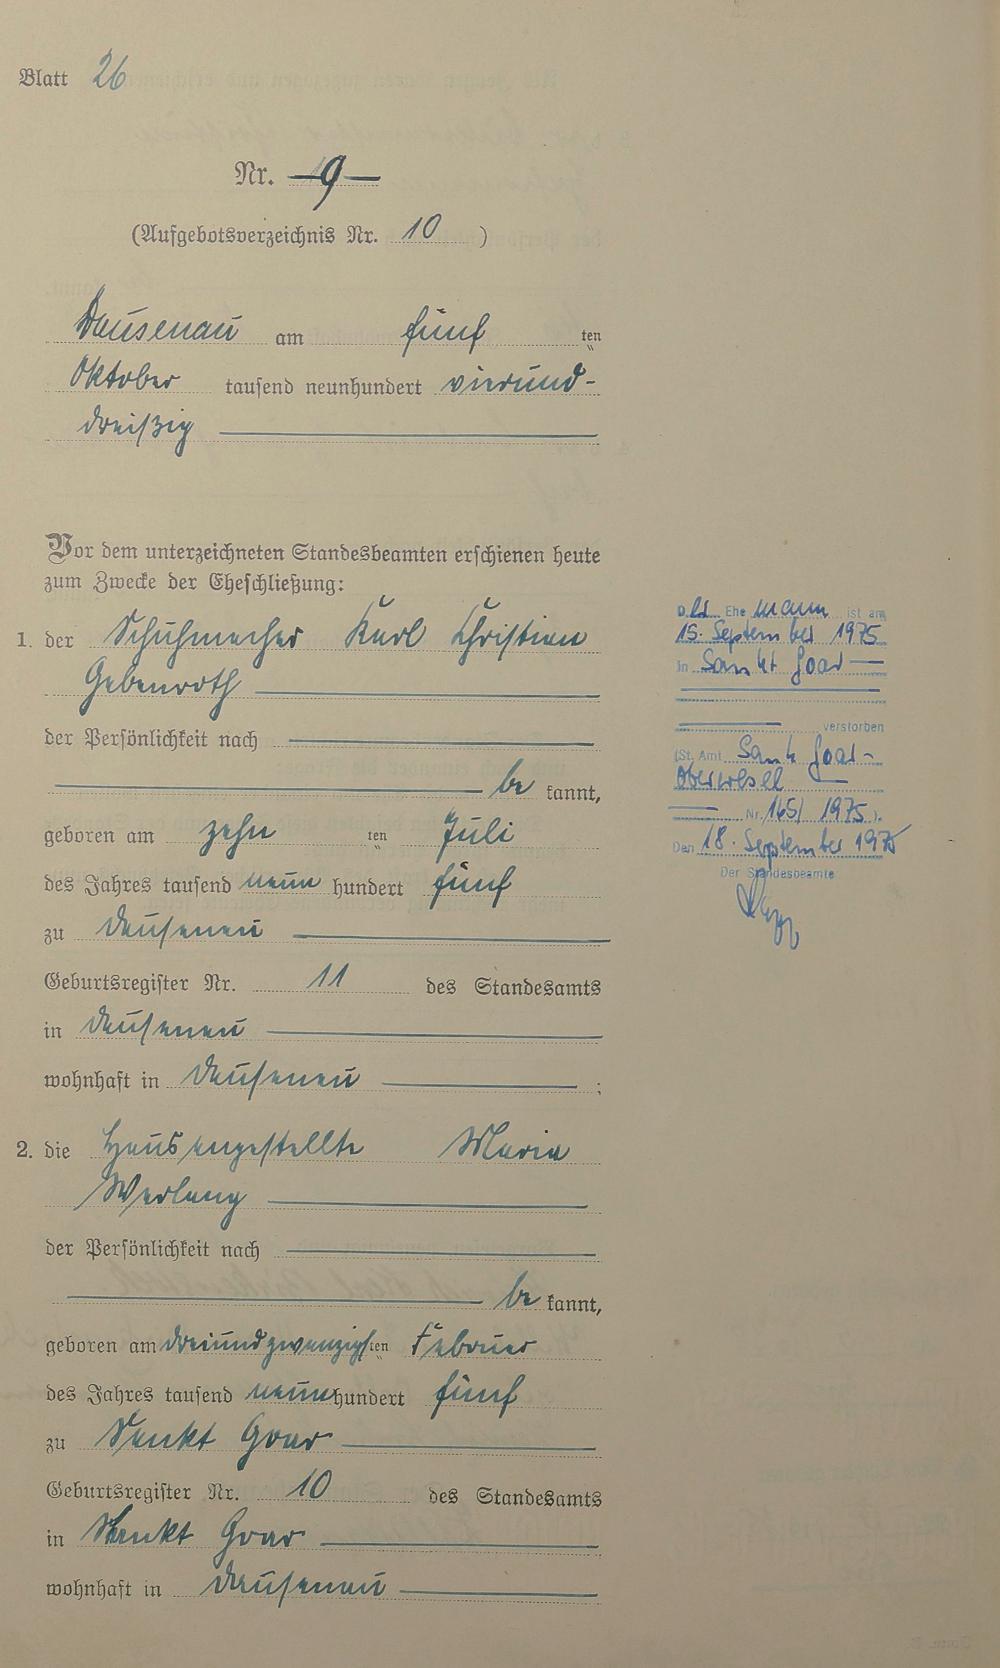 Blatt 26
Nr. 9
(Aufgebotsverzeichnis Nr. 10 )
Dausenau am fünf ten
Oktober tausend neunhundert vierund-
dreißig
Vor dem unterzeichneten Standesbeamten erschienen heute
zum Zwecke der Eheschließung:
1. der Schuhmacher Karl Christian
Gebenroth
der Persönlichkeit nach
be kannt,
geboren am zehn ten Juli
des Jahres tausend neun hundert fünf
zu Dausenau
Geburtsregister Nr. 11 des Standesamts
in Dausenau
wohnhaft in Dausenau ;
2. die Hausangestellte Maria
Werlang
der Persönlichkeit nach
be kannt,
geboren am dreiundzwanzigsten Februar
des Jahres tausend neunhundert fünf
zu Sankt Goar
Geburtsregister Nr. 10 des Standesamts
in Sankt Goar
wohnhaft in Dausenau
Der Ehe mann ist am
15. September 1975
in Sankt Goar
verstorben
(St. Amt Sankt Goar-
Oberwesel
Nr. 165/ 1975 ).
Den 18. September 1975
Der Standesbeamte